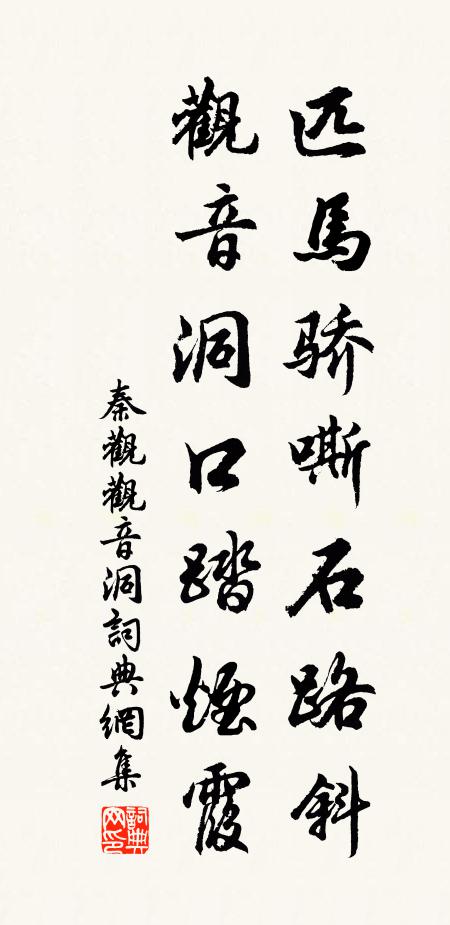 匹馬骄嘶石路斜
觀音洞口踏煙霞
秦觀觀音洞詞典網集
詞典网印